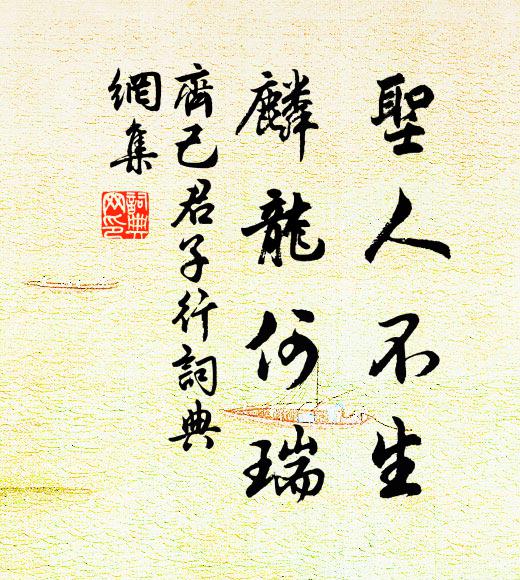 聖人不生
麟龍何瑞
齊己君子行詞典
網集
詞典
网印